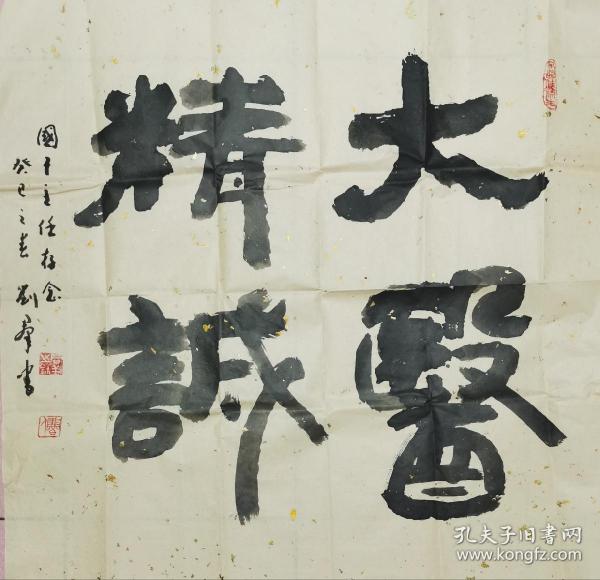 大醫
精誠
國平主任存念
癸巳之春 劉群書
孔夫子旧書网
www.kongfz.com